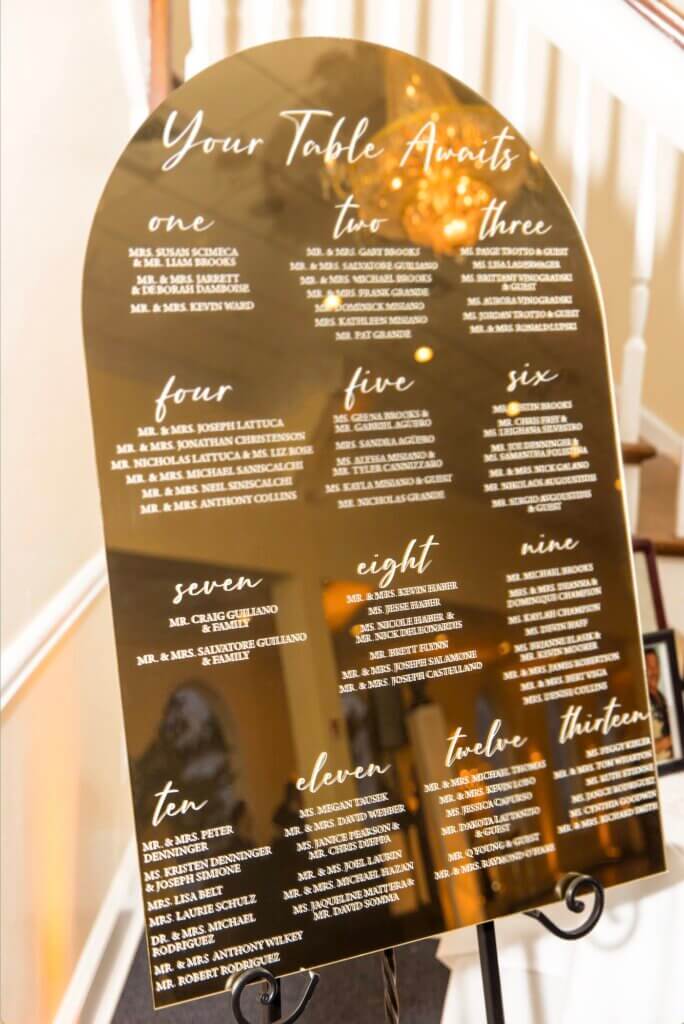 Your Table Awaits
one
MRS. SUSAN SCIMECA
& MR. LIAM BROOKS
MR. & MRS. JARRETT
& DEBORAH DAMBOISE
MR. & MRS. KEVIN WARD
two
MR. & MRS. GARY BROOKS
MR. & MRS. SALVATORE GUILIANO
MR. & MRS. MICHAEL BROOKS
MR. & MRS. FRANK GRANDE
DOMINICK MISIANO
MRS. KATHLEEN MISIANO
MR. PAT GRANDE
three
MS. PAIGE TROTTO & GUEST
MS. LISA
MS. BRITTANY VINOGRADSKI
& GUEST
MS. AURORA VINOGRADSKI
MS. JORDAN TROTTO & GUEST
MR. & MRS. RONALD LUPSKI
four
MR. & MRS. JOSEPH LATTUCA
MR. & MRS. JONATHAN CHRISTENSON
MR. NICHOLAS LATTUCA & MS. LIZ ROSE
MR. & MRS. MICHAEL SANISCALCHI
MR. & MRS. NEIL SINISCALCHI
MR. & MRS. ANTHONY COLLINS
five
MS. GEENA BROOKS &
MR. GABRIEL AGÜERO
MRS. SANDRA AGÜERO
MS. ALYSSA MISIANO &
MR. TYLER CANNIZZARO
MS. KAYLA MISIANO & GUEST
MR. NICHOLAS GRANDE
six
BROOKS
MR. CHRIS FREY &
MS. LEIGHANA SILVESTRO
MR. JOE DENNINGER &
MS. SAMANTHA
MR. & MRS. NICK GALANO
MR. NIKOLAOS AUGOUSTIDIS
MR. SERGIO AUGOUSTIDIS
& GUEST
seven
MR. CRAIG GUILIANO
& FAMILY
MR. & MRS. SALVATORE GUILIANO
& FAMILY
eight
MR. & MRS. KEVIN HABER
MS. JESSE HABER
MS. NICOLE HABER &
MR. NICK DELEONARDIS
MR. BRETT FLYNN
MR. & MRS. JOSEPH SALAMONE
MR. & MRS. JOSEPH CASTELLANO
nine
MR. MICHAEL BROOKS
MRS. & MRS. DEANNA &
DOMINIQUE CHAMPION
MS. KAYLAH CHAMPION
MS. DEVIN HAFF
MS. BRIANNE ELASIK &
MR. KEVIN MOOKER
MR. & MRS. JAMES ROBERTSON
MR. & MRS. BERT VEGA
MRS. DENISE COLLINS
ten
MR. & MRS. PETER
DENNINGER
MS. KRISTEN DENNINGER
& JOSEPH SIMIONE
MRS. LISA BELT
MRS. LAURIE SCHULZ
DR. & MRS. MICHAEL
RODRIGUEZ
MR. & MRS ANTHONY WILKEY
MR. ROBERT RODRIGUEZ
eleven
MS. MEGAN TAUSEK
MR. & MRS. DAVID WEBBER
MS. JANICE PEARSON &
MR. CHRIS DIEPPA
MR. & MS. JOEL LAURIN
MR. & MRS. MICHAEL HAZAN
MS. JAQUELINE MATTERA &
MR. DAVID SOMMA
twelve
MR. & MRS. MICHAEL THOMAS
MR. & MRS. KEVIN LOBO
MS. JESSICA CAPURSO
MR. DAKOTA LATTANZIO
& GUEST
MR. Q YOUNG & GUEST
MR. & MRS. RAYMOND O'HARE
thirteen
MS. PEGGY KIBLER
MR. & MRS. TOM WHARTON
MS. RUTH
MS. JANICE RODRIGUEZ
MS. CYNTHIA GOODWIN
MR. & MRS. RICHARD SMITH